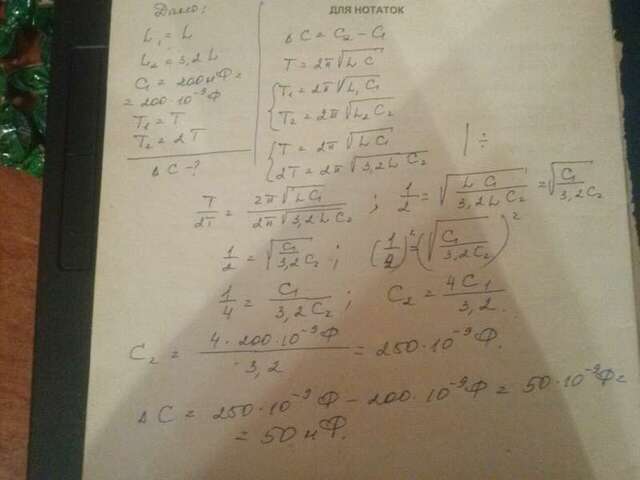 ДЛЯ НОТАТОК
Дано:
L₁ = L
L₂ = 3,2 L
C₁ = 200 нФ =
= 200·10⁻⁹ Ф
T₁ = T
T₂ = 2T
ΔC - ?
ΔC = C₂ - C₁
T = 2π√(LC)
T₁ = 2π√(L₁C₁)
T₂ = 2π√(L₂C₂)
T = 2π√(LC₁)
2T = 2π√(3,2LC₂) | ÷
T/2T = 2π√(LC₁)/2π√(3,2LC₂) ; 1/2 = √(LC₁/3,2LC₂) = √(C₁/3,2C₂)
1/2 = √(C₁/3,2C₂) ; (1/2)² = (√(C₁/3,2C₂))²
1/4 = C₁/3,2C₂ ; C₂ = 4C₁/3,2.
C₂ = 4·200·10⁻⁹Ф/3,2 = 250·10⁻⁹Ф.
ΔC = 250·10⁻⁹Ф - 200·10⁻⁹Ф = 50·10⁻⁹Ф =
= 50 нФ.